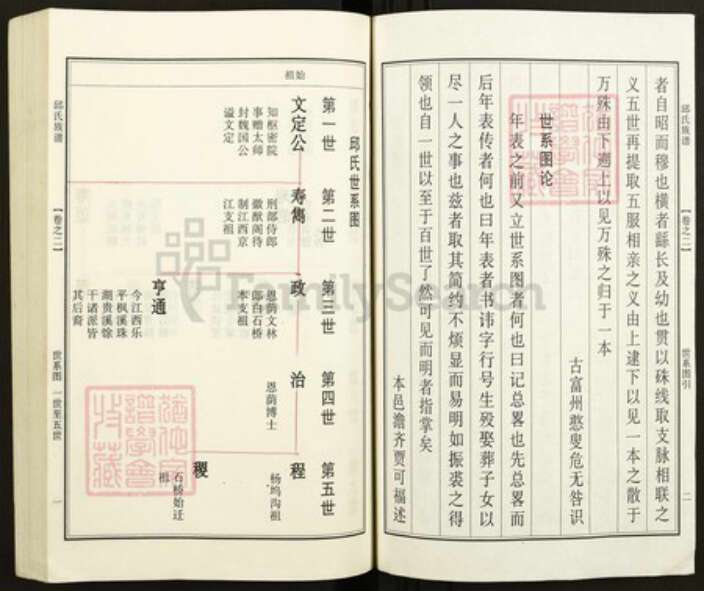 邱氏族谱
【卷之二】
世系图引
二
者自昭而穆也横者繇长及幼也贯以硃线取支脉相联之
义五世再提取五服相亲之义由上逮下以见一本之散于
万殊由下溯上以见万殊之归于一本
古富州憨叟危无咎识
世系图论
年表之前又立世系图者何也曰记总畧也先总畧而
后年表传者何也曰年表者书讳字行号生殁娶葬子女以
尽一人之事也兹者取其简约不烦显而易明如振裘之得
领也自一世以至于百世了然可见而明者指掌矣
本邑澹齐贾可福述
邱氏世系图
始祖
第一世
第二世
第三世
第四世
第五世
文定公
知枢密院
事赠太师
封魏国公
谥文定
寿雋
刑部侍郎
徽猷阁待
制江西京
江支祖
政
恩荫文林
郎白石桥
本支祖
治
恩荫博士
程
杨坞沟祖
稷
石桥始迁
祖
亨通
今江西乐
平枫溪珠
湖贵溪馀
干诸派皆
其后裔
邱氏族谱
【卷之二】
世系图 一世至五世
一
FamilySearch